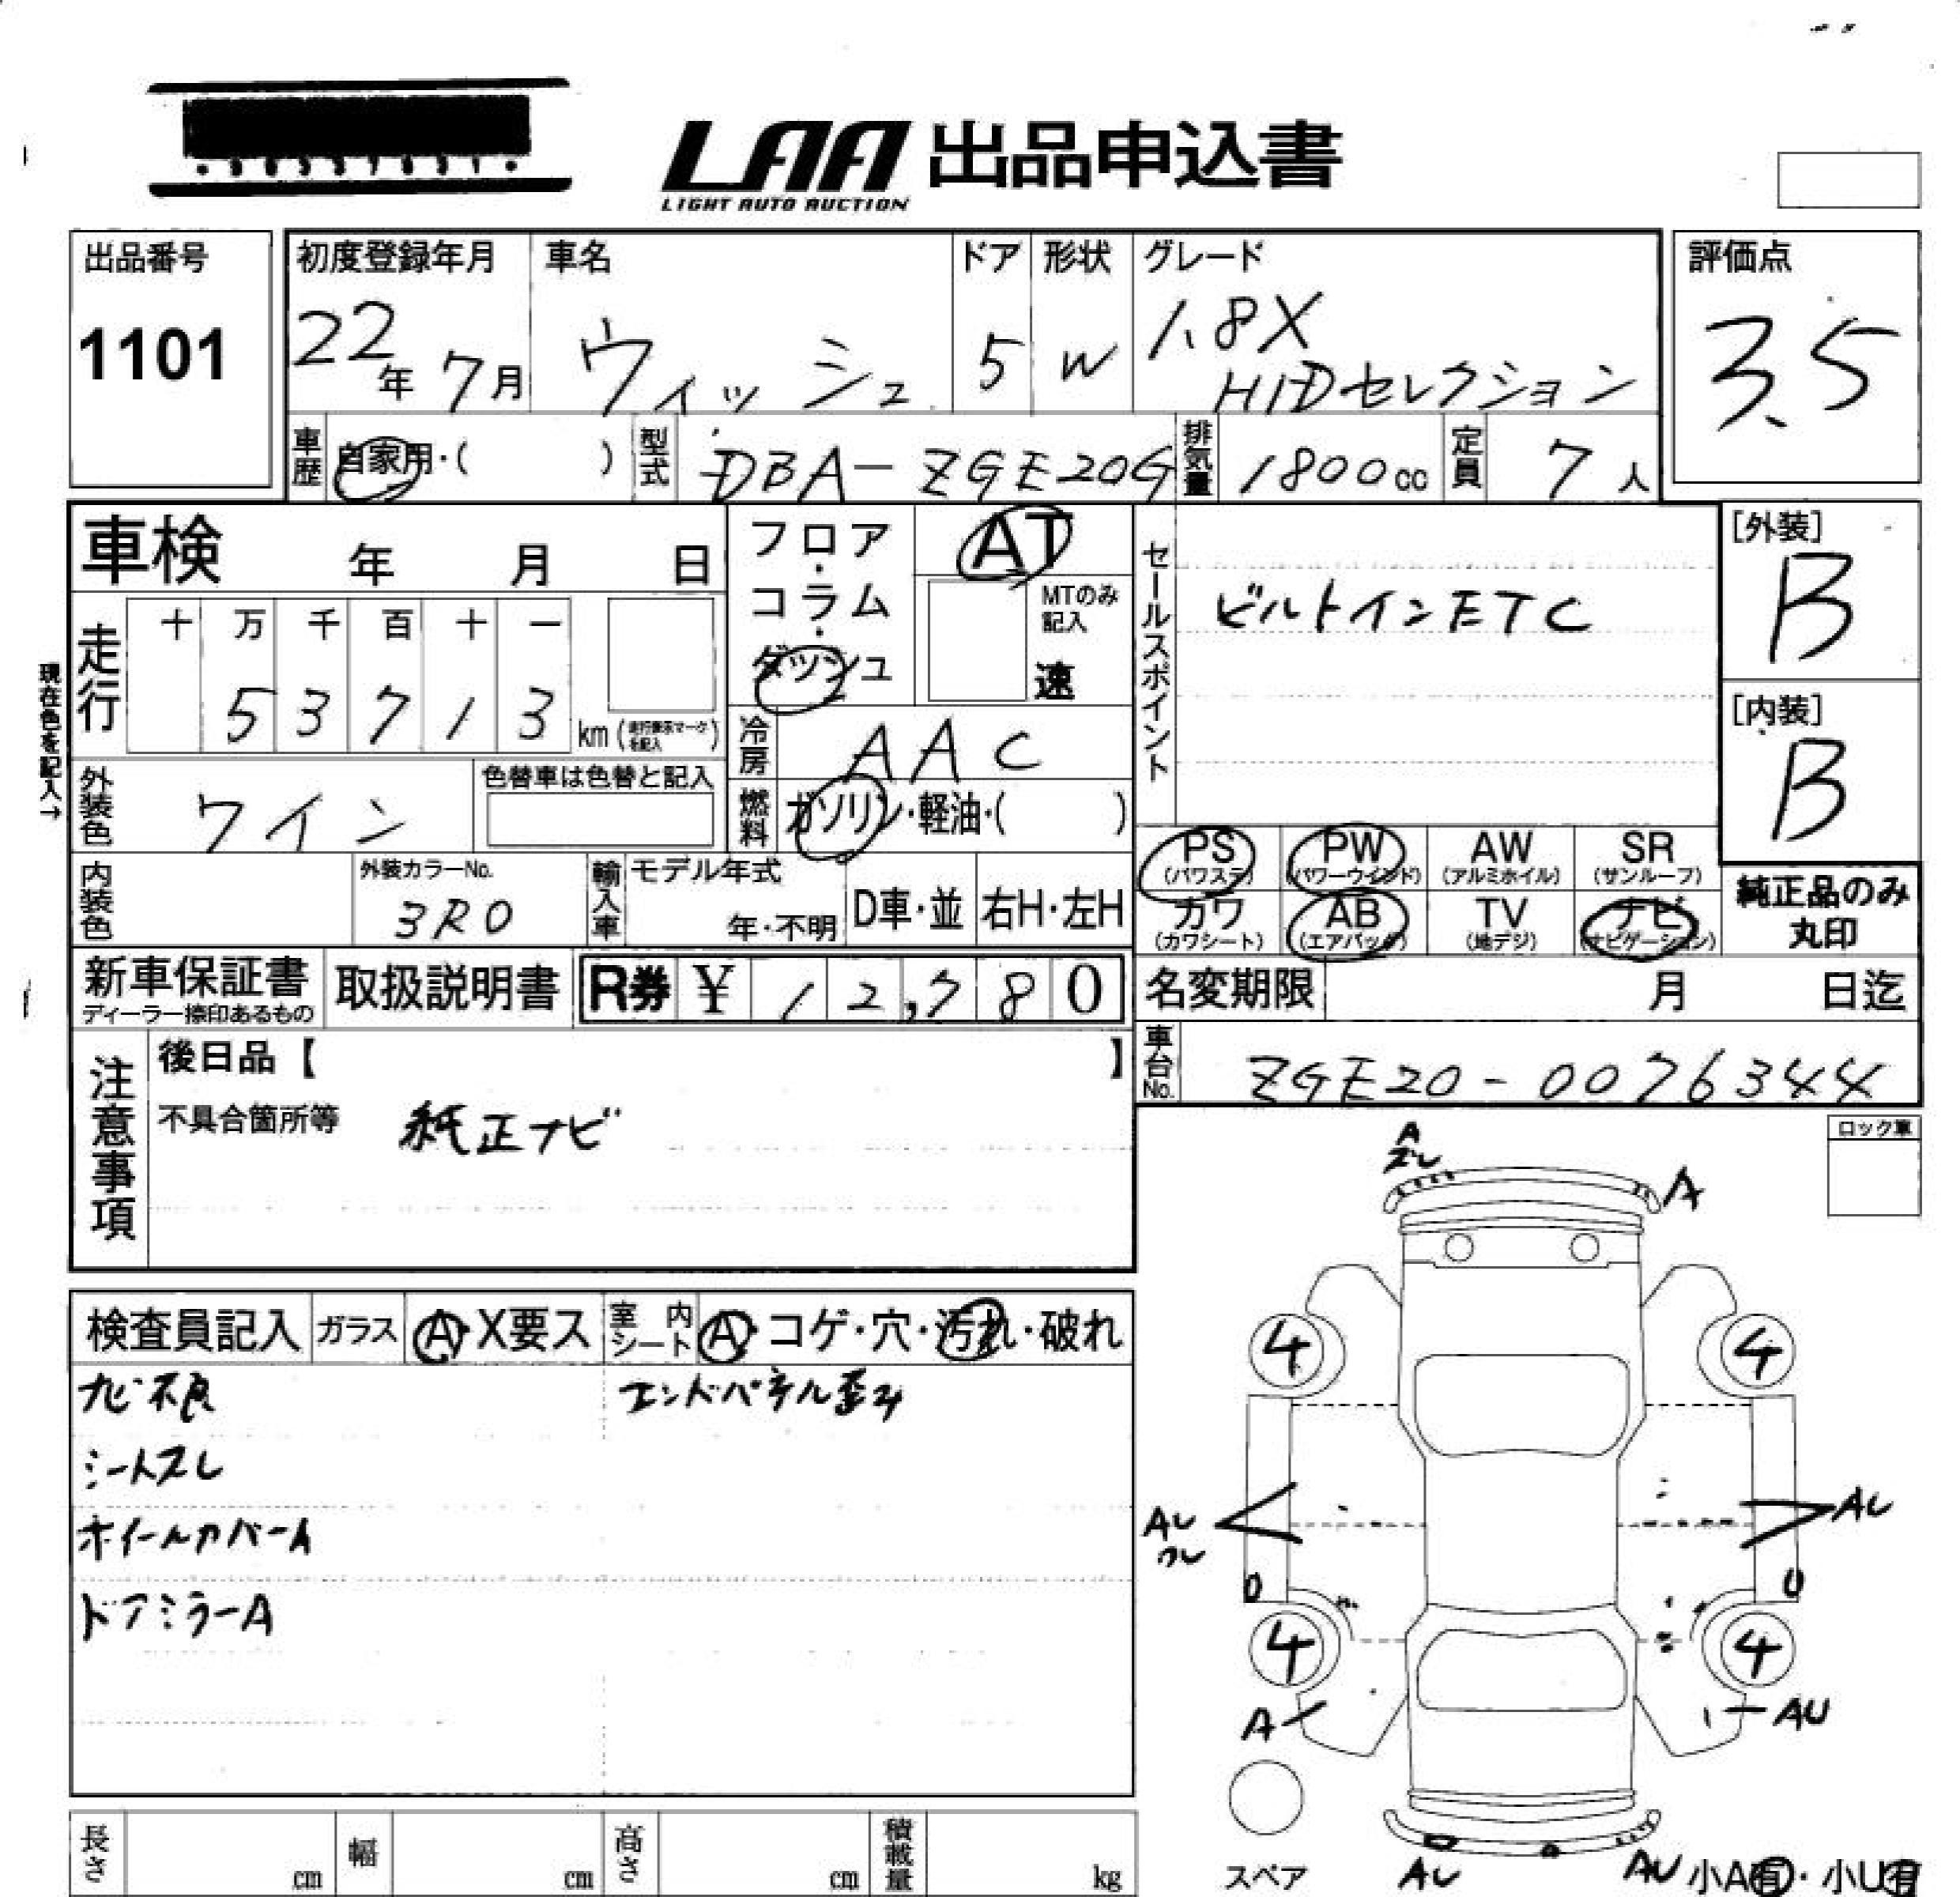 LAA 出品申込書
LIGHT AUTO AUCTION
出品番号
1101
初度登録年月
22年 7月
車名
ウィッシュ
ドア
5
形状
W
グレード
1.8X
HIDセレクション
評価点
3.5
車歴
自家用・( )
型式
DBA-ZGE20G
排気量
1800cc
定員
7人
車検 年 月 日
フロア・コラム・ダッシュ
AT
MTのみ記入
速
セールスポイント
ビルトインETC
[外装]
B
[内装]
B
現在色を記入→
走行
十 万 千 百 十 一
5 3 7 1 3 km
冷房
AAC
外装色
ワイン
色替車は色替と記入
燃料
ガソリン・軽油・( )
PS (パワステ)
PW (パワーウインド)
AW (アルミホイル)
SR (サンルーフ)
カワ (カワシート)
AB (エアバック)
TV (地デジ)
ナビ (ナビゲーション)
純正品のみ丸印
内装色
外装カラーNo.
3R0
輸入車
モデル年式
年・不明
D車・並
右H・左H
新車保証書
ディーラー捺印あるもの
取扱説明書
R券 ¥ 12,780
名変期限 月 日迄
車台No.
ZGE20-0076344
注意事項
後日品【 】
不具合箇所等
純正ナビ
ロック車
検査員記入
ガラス
A・X要ス
室内シート
A・コゲ・穴・汚れ・破れ
ナビ不良
エンドパネル歪み
シートスレ
ホイールカバーA
ドアミラーA
A
ズレ
A
4
4
AU
AU
U
4
4
A
AU
スペア
AU
AU
小A有・小U有
長さ cm
幅 cm
高さ cm
積載量 kg